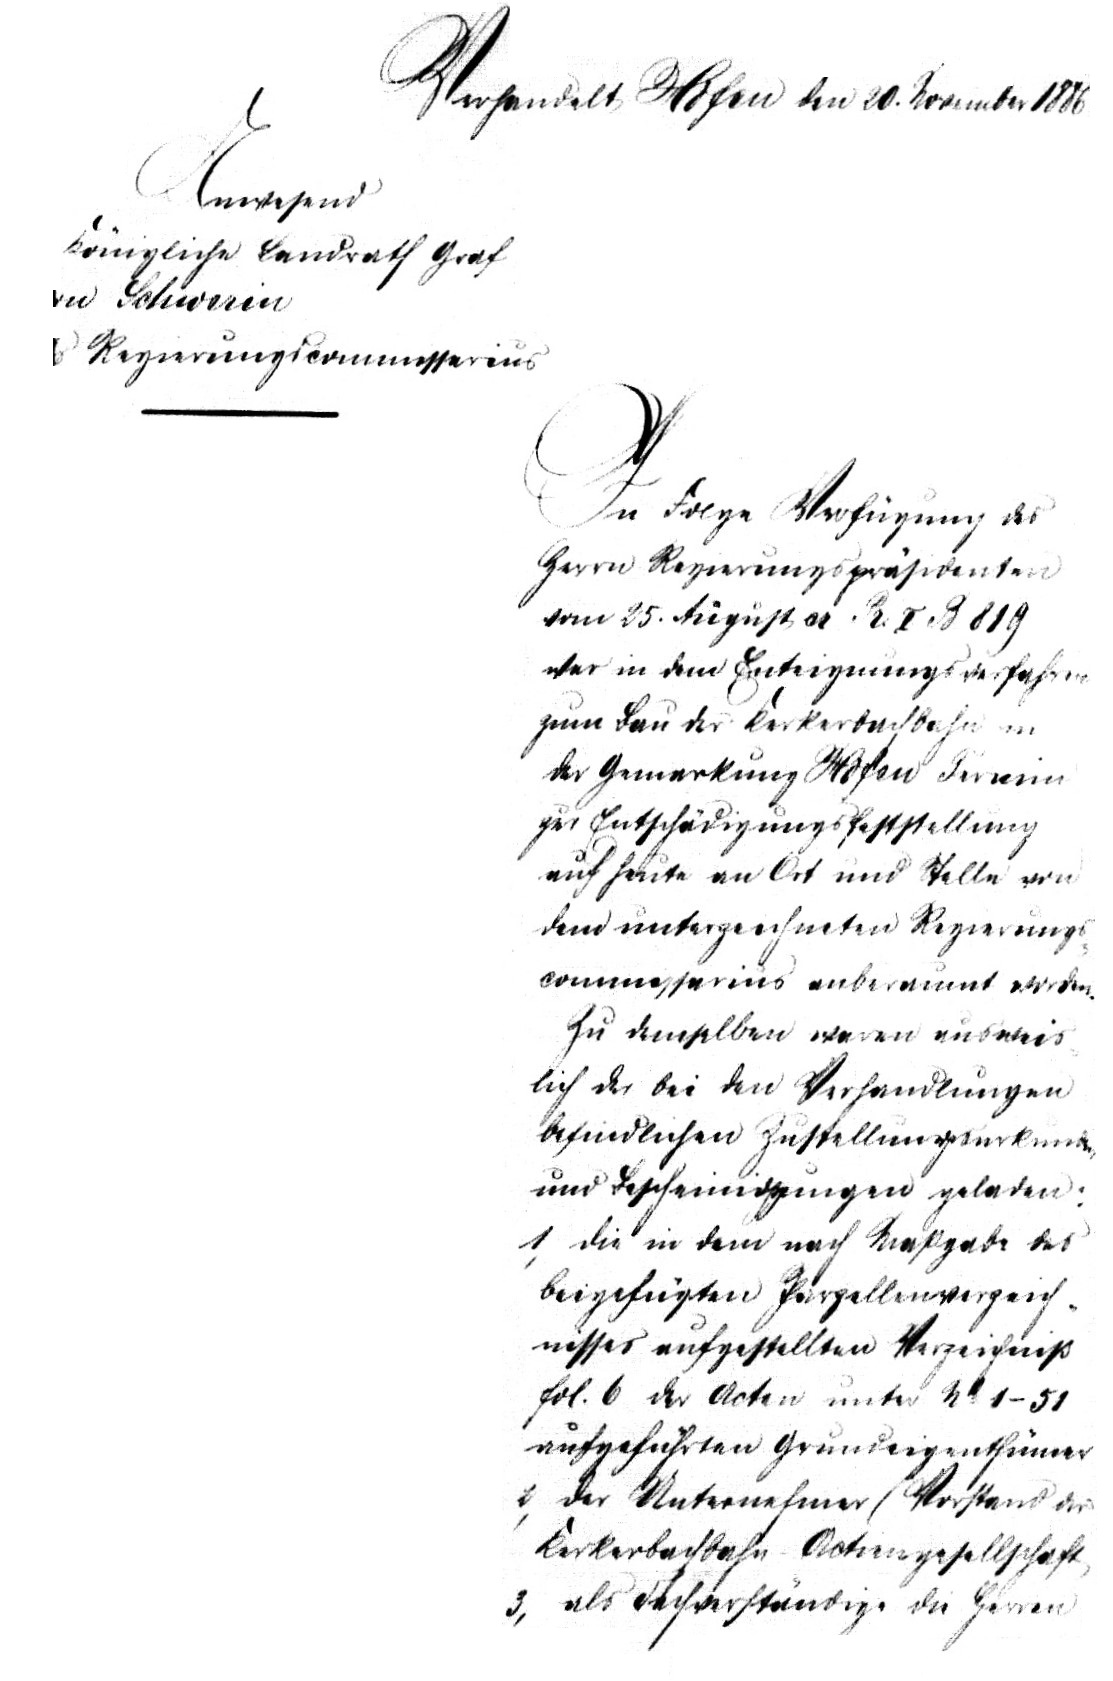 Verhandelt, Hofen den 20. November 1886
Anwesend
Königliche Landrath Graf
von Schwerin
Regierungscommissarius
In Folge Verfügung des
Herrn Regierungspräsidenten
vom 25. August cr. Pr. I B 819
war in dem Enteignungsverfahren
zum Bau der Kerkerbachbahn in
der Gemarkung Hofen Termin
zur Entschädigungsfeststellung
auf heute an Ort und Stelle von
dem unterzeichneten Regierungs-
commissarius anberaumt worden.
Zu demselben waren ausweis-
lich der bei den Verhandlungen
befindlichen Zustellungsurkunden
und Bescheinigungen geladen:
1, die in dem nach Maßgabe des
beigefügten Parzellenverzeich-
nisses aufgestellten Verzeichniß
fol. 6 der Acten unter No 1-51
aufgeführten Grundeigenthümer
2, der Unternehmer (Vorstand der
Kerkerbachbahn-Actiengesellschaft,
3, als Sachverständige die Herren